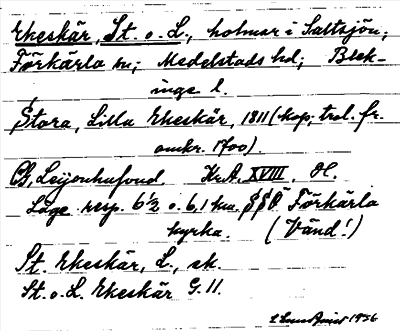 Ekeskär, St. o. L., holmar i Saltsjön;
Förkärla sn; Medelstads hd; Blek-
inge l.
Stora, Lilla Ekeskär, 1811 (kop; trol. fr.
omkr. 1700)
Leijonhufvud. Kr.A. XVIII. H.
Läge resp. 6½ o. 6,1 km. Förkärla
kyrka. (Vänd!)
St. Ekeskär, L., ek.
St. o. L. Ekeskär G. 11.
1936